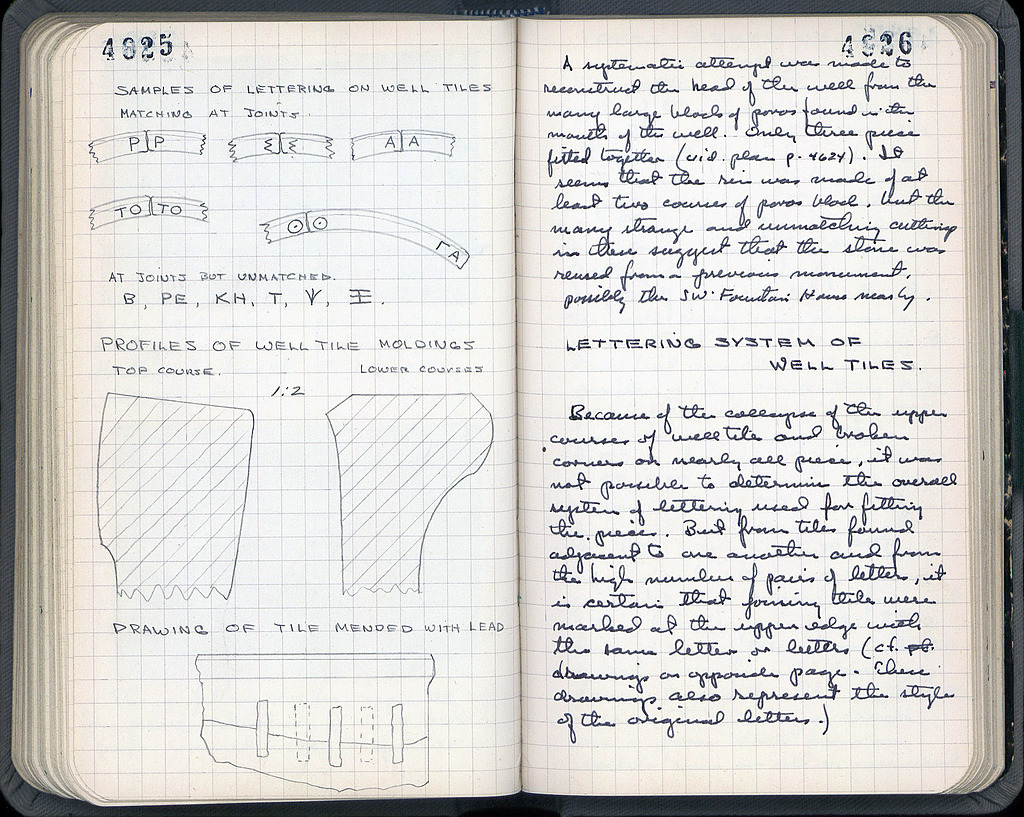 4825
SAMPLES OF LETTERING ON WELL TILES
MATCHING AT JOINTS.
P P
Σ Σ
A A
TO TO
⊙ ⊙
Γ A
AT JOINTS BUT UNMATCHED.
B, PE, KH, T, Ψ, Ξ.
PROFILES OF WELL TILE MOLDINGS
TOP COURSE.
LOWER COURSES
1:2
DRAWING OF TILE MENDED WITH LEAD
4826
A systematic attempt was made to
reconstruct the head of the well from the
many large blocks of poros found in the
mouth of the well. Only three piece
fitted together (vid. plan p. 4624). It
seems that the rim was made of at
least two courses of poros block, but the
many strange and unmatching cutting
in these suggest that the stone was
reused from a previous monument,
possibly the SW. Fountain House nearby.
LETTERING SYSTEM OF
WELL TILES.
Because of the collapse of the upper
courses of well tile and broken
corners on nearly all piece, it was
not possible to determine the overall
system of lettering used for fitting
the pieces. But from tiles found
adjacent to one another and from
the high number of pairs of letters, it
is certain that joining tile were
marked at the upper edge with
the same letter or letters (cf.
drawings on opposite page. These
drawings also represent the style
of the original letters.)